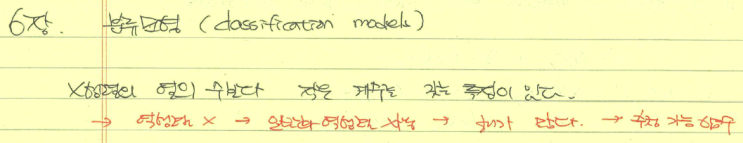 6장. 분류모형 (classification models)
X행렬의 열의 수보다 작은 계수를 갖는 특징이 있다.
→ 역행렬 X → 일반화 역행렬 사용 → 해가 많다. → 추정 가능 함수